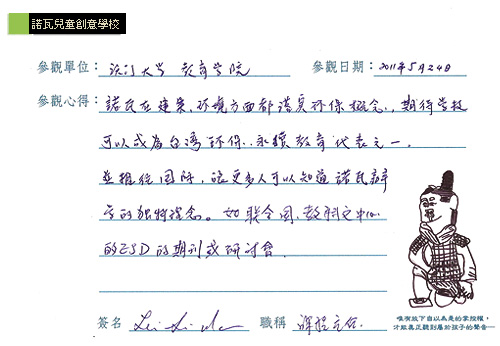 諾瓦兒童創意學校
參觀單位： 大學 教育學院 參觀日期：2011年5月24日
參觀心得：諾瓦在建築、環境方面都落實環保概念，期待學校
可以成為台灣環保、永續教育代表之一，
並推往國際，讓更多人可以知道諾瓦辦
學的獨特理念。如聯合國、教科文中心
的ESD的期刊或研討會。
簽名 職稱
唯有放下自以為是的掌控權，
才能真正聽到屬於孩子的聲音